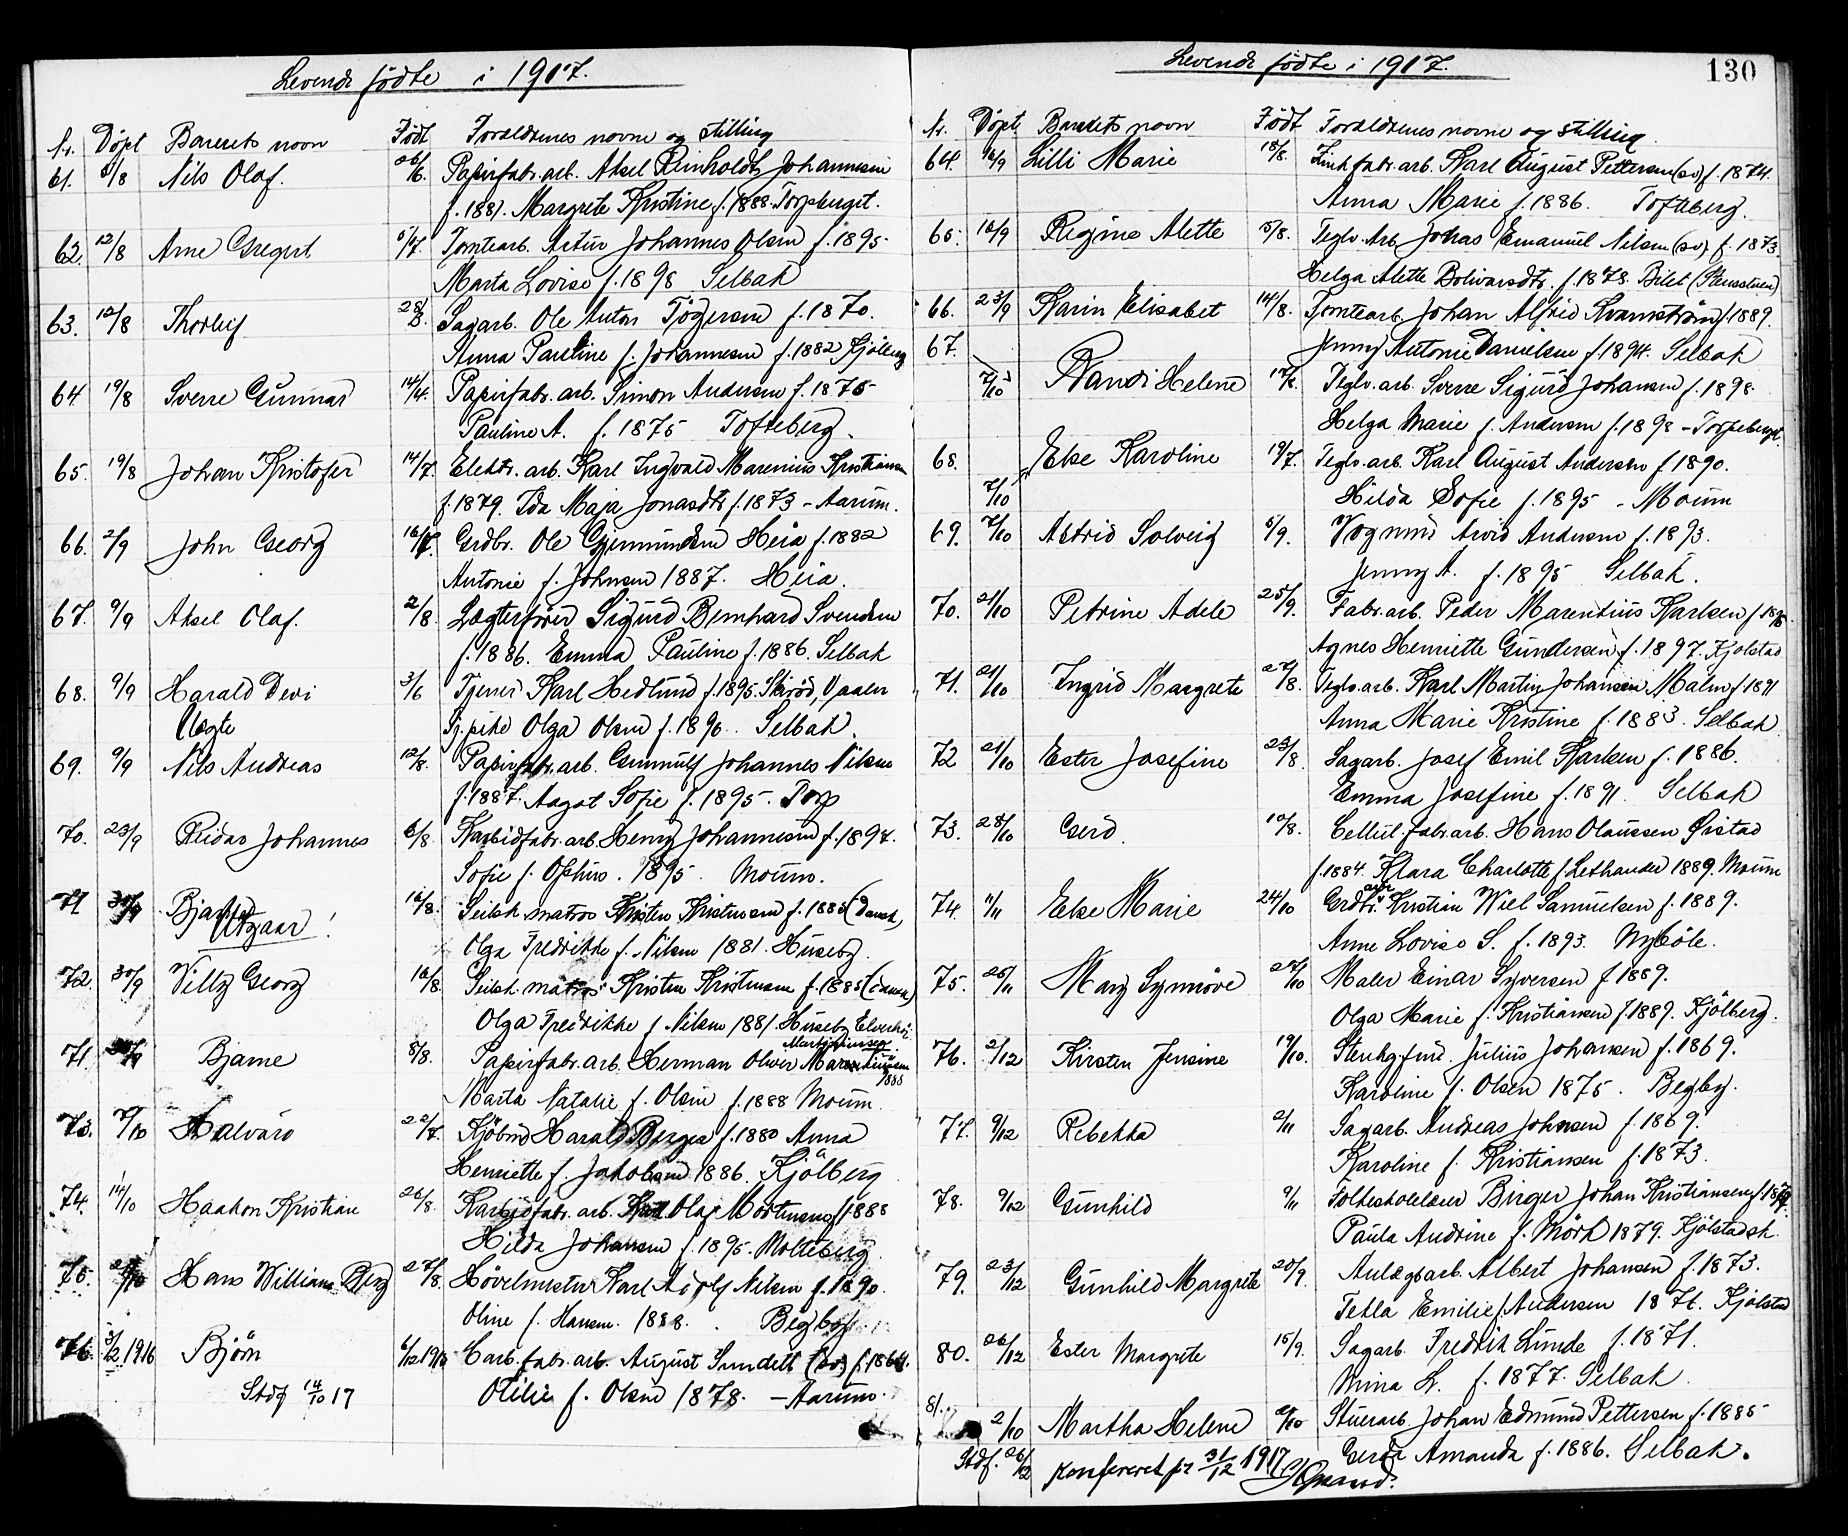 Levende födte i 1917.
Nr. Döpt Barnets navn Födt Forældrenes navne og stilling
61. 5/8 Nils Olaf. 26/6. Papirfabr. arb. Aksel Reinholdt Johannesen
f. 1881. Margrete Kristine f. 1888. Torpberget.
62. 12/8 Arne Gregert 5/7. Tomtearb. Artur Johannes Olsen f. 1895.
Marta Lovise f. 1898 Selbak
63. 12/8 Thorleif 28/ Sagarb. Ole Anton Tögersen f. 1870.
Anna Pauline f. Johannesen f. 1882 Kjölberg
64 19/8 Sverre Gunnar 14/4. Papirfabr. arb. Simon Andersen f. 1875
Pauline A. f. 1875 Tofteberg.
65. 19/8 Johan Kristofer 14/7. Elektr. arb. Karl Ingvald Marenius Kristiansen
f. 1879. Ida Maja Jonasdtr f. 1873 - Aarum.
66. 2/9 John Georg 16/7. Grdbr. Ole Gjermundsen Heia f. 1882
Antonie f. Johnsen 1887. Heia.
67. 9/9 Aksel Olaf. 2/8. Lægterförer Sigurd Bernhard Svendsen
f. 1886. Emma Pauline f. 1886. Selbak
68. 9/9 Harald Devi 3/6 Tjener Karl Hedlund f. 1895. Skiröd, Vaaler
Uegte Tj. pike Olga Olsen f. 1890. Selbak.
69. 9/9 Nils Andreas 12/8. Papirfabr. arb. Gunnulf Johannes Nilsen
f. 1887. Aagot Sofie f. 1895. Torp
70. 23/9 Reidar Johannes 6/8. Karbidfabr. arb. Henry Johannesen f. 1894.
Sofie f. 1895. Moum.
71 30/9 Bjarne 16/8. Seilsk. matros Kristen Kristensen f. 1885 (Dansk)
Utgaar! Olga Fredrikke f. Nilsen 1881. Huseby.
72. 30/9 Villy Georg 16/8. Seilsk. matros Kristen Kristensen f. 1885 (dansk)
Olga Fredrikke f. Nilsen 1881. Huseby
71. 30/9 Bjarne 8/8. Papirfabr. arb. Herman Oliver Martiniussen
1885
Marta Natalie f. Olsen f. 1888 Moum.
73. 7/10 Halvard 22/7. Kjöbmd Harald Berger f. 1880 Anna
Henriette f. Jakobsen 1886. Kjölberg
74. 14/10 Haakon Kristian 26/8. Karbidfabr. arb. Karl Olaf Mortensen f. 1888
Hilda Johansen f. 1895. Molteberg
75. 21/10 Hans William Berg 27/8. Hövelmester Karl Adolf Nilsen f. 1890.
Oline f. Hansen. 1888. Begby.
76. 3/12 1916 Björn 6/12 1915 Carb. fabr. arb. August Sundell (sv.) f. 1864.
Stdf 14/10 17 Otilie f. Olsen 1878. - Aarum.
Levende födte i 1917.
130
Nr. Döpt Barnets navn Födt Forældrenes navne og stilling
64. 16/9 Lilli Marie 18/8. Zinkfabr. arb. Karl August Pettersen (sv) f. 1874.
Anna Marie f. 1886. Tofteberg.
65. 16/9 Regine Alette 5/8. Teglv. Arb Johas Emanuel Nilsen (sv) f. 1873
Helga Alette Bolivarsdtr. f. 1878. Bilet
66. 23/9 Karin Elisabet 14/8. Tomtearb. Johan Alfrid Kvarnström f. 1889.
Jenny Antonie Danielsen f. 1894. Selbak
67. 7/10 Randi Helene 17/8. Teglv. arb. Sverre Sigurd Johansen f. 1898.
Helga Marie f. Andersen f. 1898 - Torpeberget.
68. 7/10 Else Karoline 19/7. Teglv. arb. Karl August Andersen f 1890.
Hilda Sofie f. 1895 - Moum
69. 7/10 Astrid Solveig 5/9. Vognmd Arvid Andersen f. 1893.
Jenny A. f. 1895 Selbak.
70. 21/10 Petrine Adele 25/9. Fabr. arb. Peder Marentius Karlsen f.
Agnes Henriette Gundersen f. 1897. Kjolstad
71. 21/10 Ingrid Margrete 27/8. Teglv. arb. Karl Martin Johansen Malm f. 1891
Anna Marie Kristine f. 1883. Selbak
72 21/10 Ester Josefine 23/8. Sagarb. Josef Emil Karlsen f. 1886.
Emma Josefine f. 1891. Selbak
73. 28/10 Gerd 10/8. Cellul. fabr. arb. Hans Olaussen Öistad
f. 1884. Klara Charlotte f. Lethander 1889. Moum
74. 11/11 Else Marie 24/10 Grdbr. Kristian Wiel Samuelsen f. 1889.
Anne Lovise S. f. 1893. Nyböle.
75. 25/11 Mary Synnöve 27/10 Maler Einar Syversen f 1889.
Olga Marie f. Kristiansen f. 1889. Kjölberg.
76. 2/12 Kirsten Jensine 19/10. Stenhg. fmd. Julius Johansen f. 1869.
Karoline f. Olsen 1875. Begby.
77. 9/12 Rebekka 2/11 Sagarb. Andreas Johnsen f. 1869.
Karoline f. Kristiansen f. 1873.
78. 9/12 Gunhild 9/11 Folkeskolelærer Birger Johan Kristiansen f.
Paula Andrine f. Mörk 1879. Kjölstad sk.
79. 23/12 Gunhild Margrete 20/9. Anlægsarb. Albert Johansen f. 1873.
Tekla Emilie f. Andersen 1876. Kjölstad
80. 26/12 Ester Margrete 15/9. Sagarb. Fredrik Lunde f. 1871.
Mina L. f. 1877. Selbak.
81. 2/10 Martha Helene Stuerarb. Johan Edmund Pettersen f. 1885
Stdf. 26/12 Gerda Amanda f. 1886. Selbak.
Konfereret pr 31/12 1917